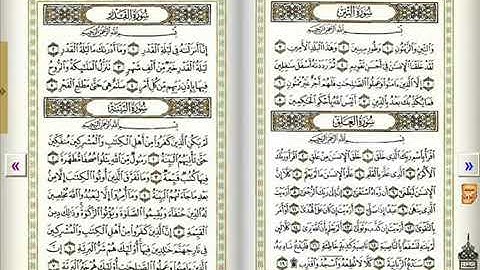 سُورَةُ التِّينِ
بِسْمِ اللَّهِ الرَّحْمَٰنِ الرَّحِيمِ
وَالتِّينِ وَالزَّيْتُونِ ۝ وَطُورِ سِينِينَ ۝ وَهَٰذَا الْبَلَدِ الْأَمِينِ ۝
لَقَدْ خَلَقْنَا الْإِنسَٰنَ فِي أَحْسَنِ تَقْوِيمٍ ۝ ثُمَّ رَدَدْنَٰهُ أَسْفَلَ سَٰفِلِينَ
۝ إِلَّا الَّذِينَ ءَامَنُوا وَعَمِلُوا الصَّٰلِحَٰتِ فَلَهُمْ أَجْرٌ غَيْرُ مَمْنُونٍ
۝ فَمَا يُكَذِّبُكَ بَعْدُ بِالدِّينِ ۝ أَلَيْسَ اللَّهُ بِأَحْكَمِ الْحَٰكِمِينَ ۝
سُورَةُ الْعَلَقِ
بِسْمِ اللَّهِ الرَّحْمَٰنِ الرَّحِيمِ
اقْرَأْ بِاسْمِ رَبِّكَ الَّذِي خَلَقَ ۝ خَلَقَ الْإِنسَٰنَ مِنْ عَلَقٍ ۝ اقْرَأْ وَرَبُّكَ
الْأَكْرَمُ ۝ الَّذِي عَلَّمَ بِالْقَلَمِ ۝ عَلَّمَ الْإِنسَٰنَ مَا لَمْ يَعْلَمْ ۝ كَلَّا
إِنَّ الْإِنسَٰنَ لَيَطْغَىٰ ۝ أَن رَّءَاهُ اسْتَغْنَىٰ ۝ إِنَّ إِلَىٰ رَبِّكَ الرُّجْعَىٰ ۝ أَرَءَيْتَ
الَّذِي يَنْهَىٰ ۝ عَبْدًا إِذَا صَلَّىٰ ۝ أَرَءَيْتَ إِن كَانَ عَلَى الْهُدَىٰ ۝
أَوْ أَمَرَ بِالتَّقْوَىٰ ۝ أَرَءَيْتَ إِن كَذَّبَ وَتَوَلَّىٰ ۝ أَلَمْ يَعْلَم بِأَنَّ اللَّهَ يَرَىٰ ۝ كَلَّا
لَئِن لَّمْ يَنتَهِ لَنَسْفَعًا بِالنَّاصِيَةِ ۝ نَاصِيَةٍ كَٰذِبَةٍ خَاطِئَةٍ ۝ فَلْيَدْعُ
نَادِيَهُ ۝ سَنَدْعُ الزَّبَانِيَةَ ۝ كَلَّا لَا تُطِعْهُ وَاسْجُدْ وَاقْتَرِب ۝
سُورَةُ الْقَدْرِ
بِسْمِ اللَّهِ الرَّحْمَٰنِ الرَّحِيمِ
إِنَّا أَنزَلْنَٰهُ فِي لَيْلَةِ الْقَدْرِ ۝ وَمَا أَدْرَىٰكَ مَا لَيْلَةُ الْقَدْرِ ۝
لَيْلَةُ الْقَدْرِ خَيْرٌ مِّنْ أَلْفِ شَهْرٍ ۝ تَنَزَّلُ الْمَلَٰئِكَةُ وَالرُّوحُ
فِيهَا بِإِذْنِ رَبِّهِم مِّن كُلِّ أَمْرٍ ۝ سَلَٰمٌ هِيَ حَتَّىٰ مَطْلَعِ الْفَجْرِ ۝
سُورَةُ الْبَيِّنَةِ
بِسْمِ اللَّهِ الرَّحْمَٰنِ الرَّحِيمِ
لَمْ يَكُنِ الَّذِينَ كَفَرُوا مِنْ أَهْلِ الْكِتَٰبِ وَالْمُشْرِكِينَ مُنفَكِّينَ
حَتَّىٰ تَأْتِيَهُمُ الْبَيِّنَةُ ۝ رَسُولٌ مِّنَ اللَّهِ يَتْلُوا صُحُفًا مُّطَهَّرَةً ۝
فِيهَا كُتُبٌ قَيِّمَةٌ ۝ وَمَا تَفَرَّقَ الَّذِينَ أُوتُوا الْكِتَٰبَ إِلَّا مِن
بَعْدِ مَا جَاءَتْهُمُ الْبَيِّنَةُ ۝ وَمَا أُمِرُوا إِلَّا لِيَعْبُدُوا اللَّهَ مُخْلِصِينَ
لَهُ الدِّينَ حُنَفَاءَ وَيُقِيمُوا الصَّلَوٰةَ وَيُؤْتُوا الزَّكَوٰةَ وَذَٰلِكَ دِينُ
الْقَيِّمَةِ ۝ إِنَّ الَّذِينَ كَفَرُوا مِنْ أَهْلِ الْكِتَٰبِ وَالْمُشْرِكِينَ
فِي نَارِ جَهَنَّمَ خَٰلِدِينَ فِيهَا أُولَٰئِكَ هُمْ شَرُّ الْبَرِيَّةِ ۝ إِنَّ
الَّذِينَ ءَامَنُوا وَعَمِلُوا الصَّٰلِحَٰتِ أُولَٰئِكَ هُمْ خَيْرُ الْبَرِيَّةِ ۝